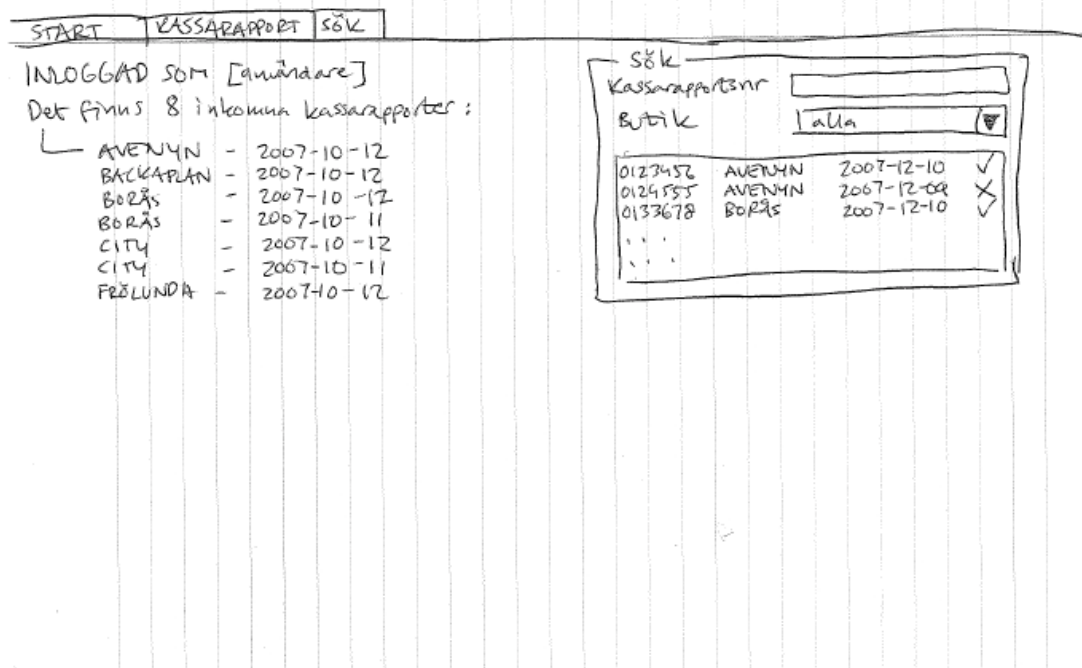 START KASSARAPPORT SÖK
INLOGGAD SOM [användare]
Det finns 8 inkomna kassarapporter:
AVENYN - 2007-10-12
BACKAPLAN - 2007-10-12
BORÅS - 2007-10-12
BORÅS - 2007-10-11
CITY - 2007-10-12
CITY - 2007-10-11
FRÖLUNDA - 2007-10-12
Sök
Kassarapportsnr
Butik alla
0123456 AVENYN 2007-12-10 ✓
0124555 AVENYN 2007-12-09 X
0133678 BORÅS 2007-12-10 ✓
. . .
. . .